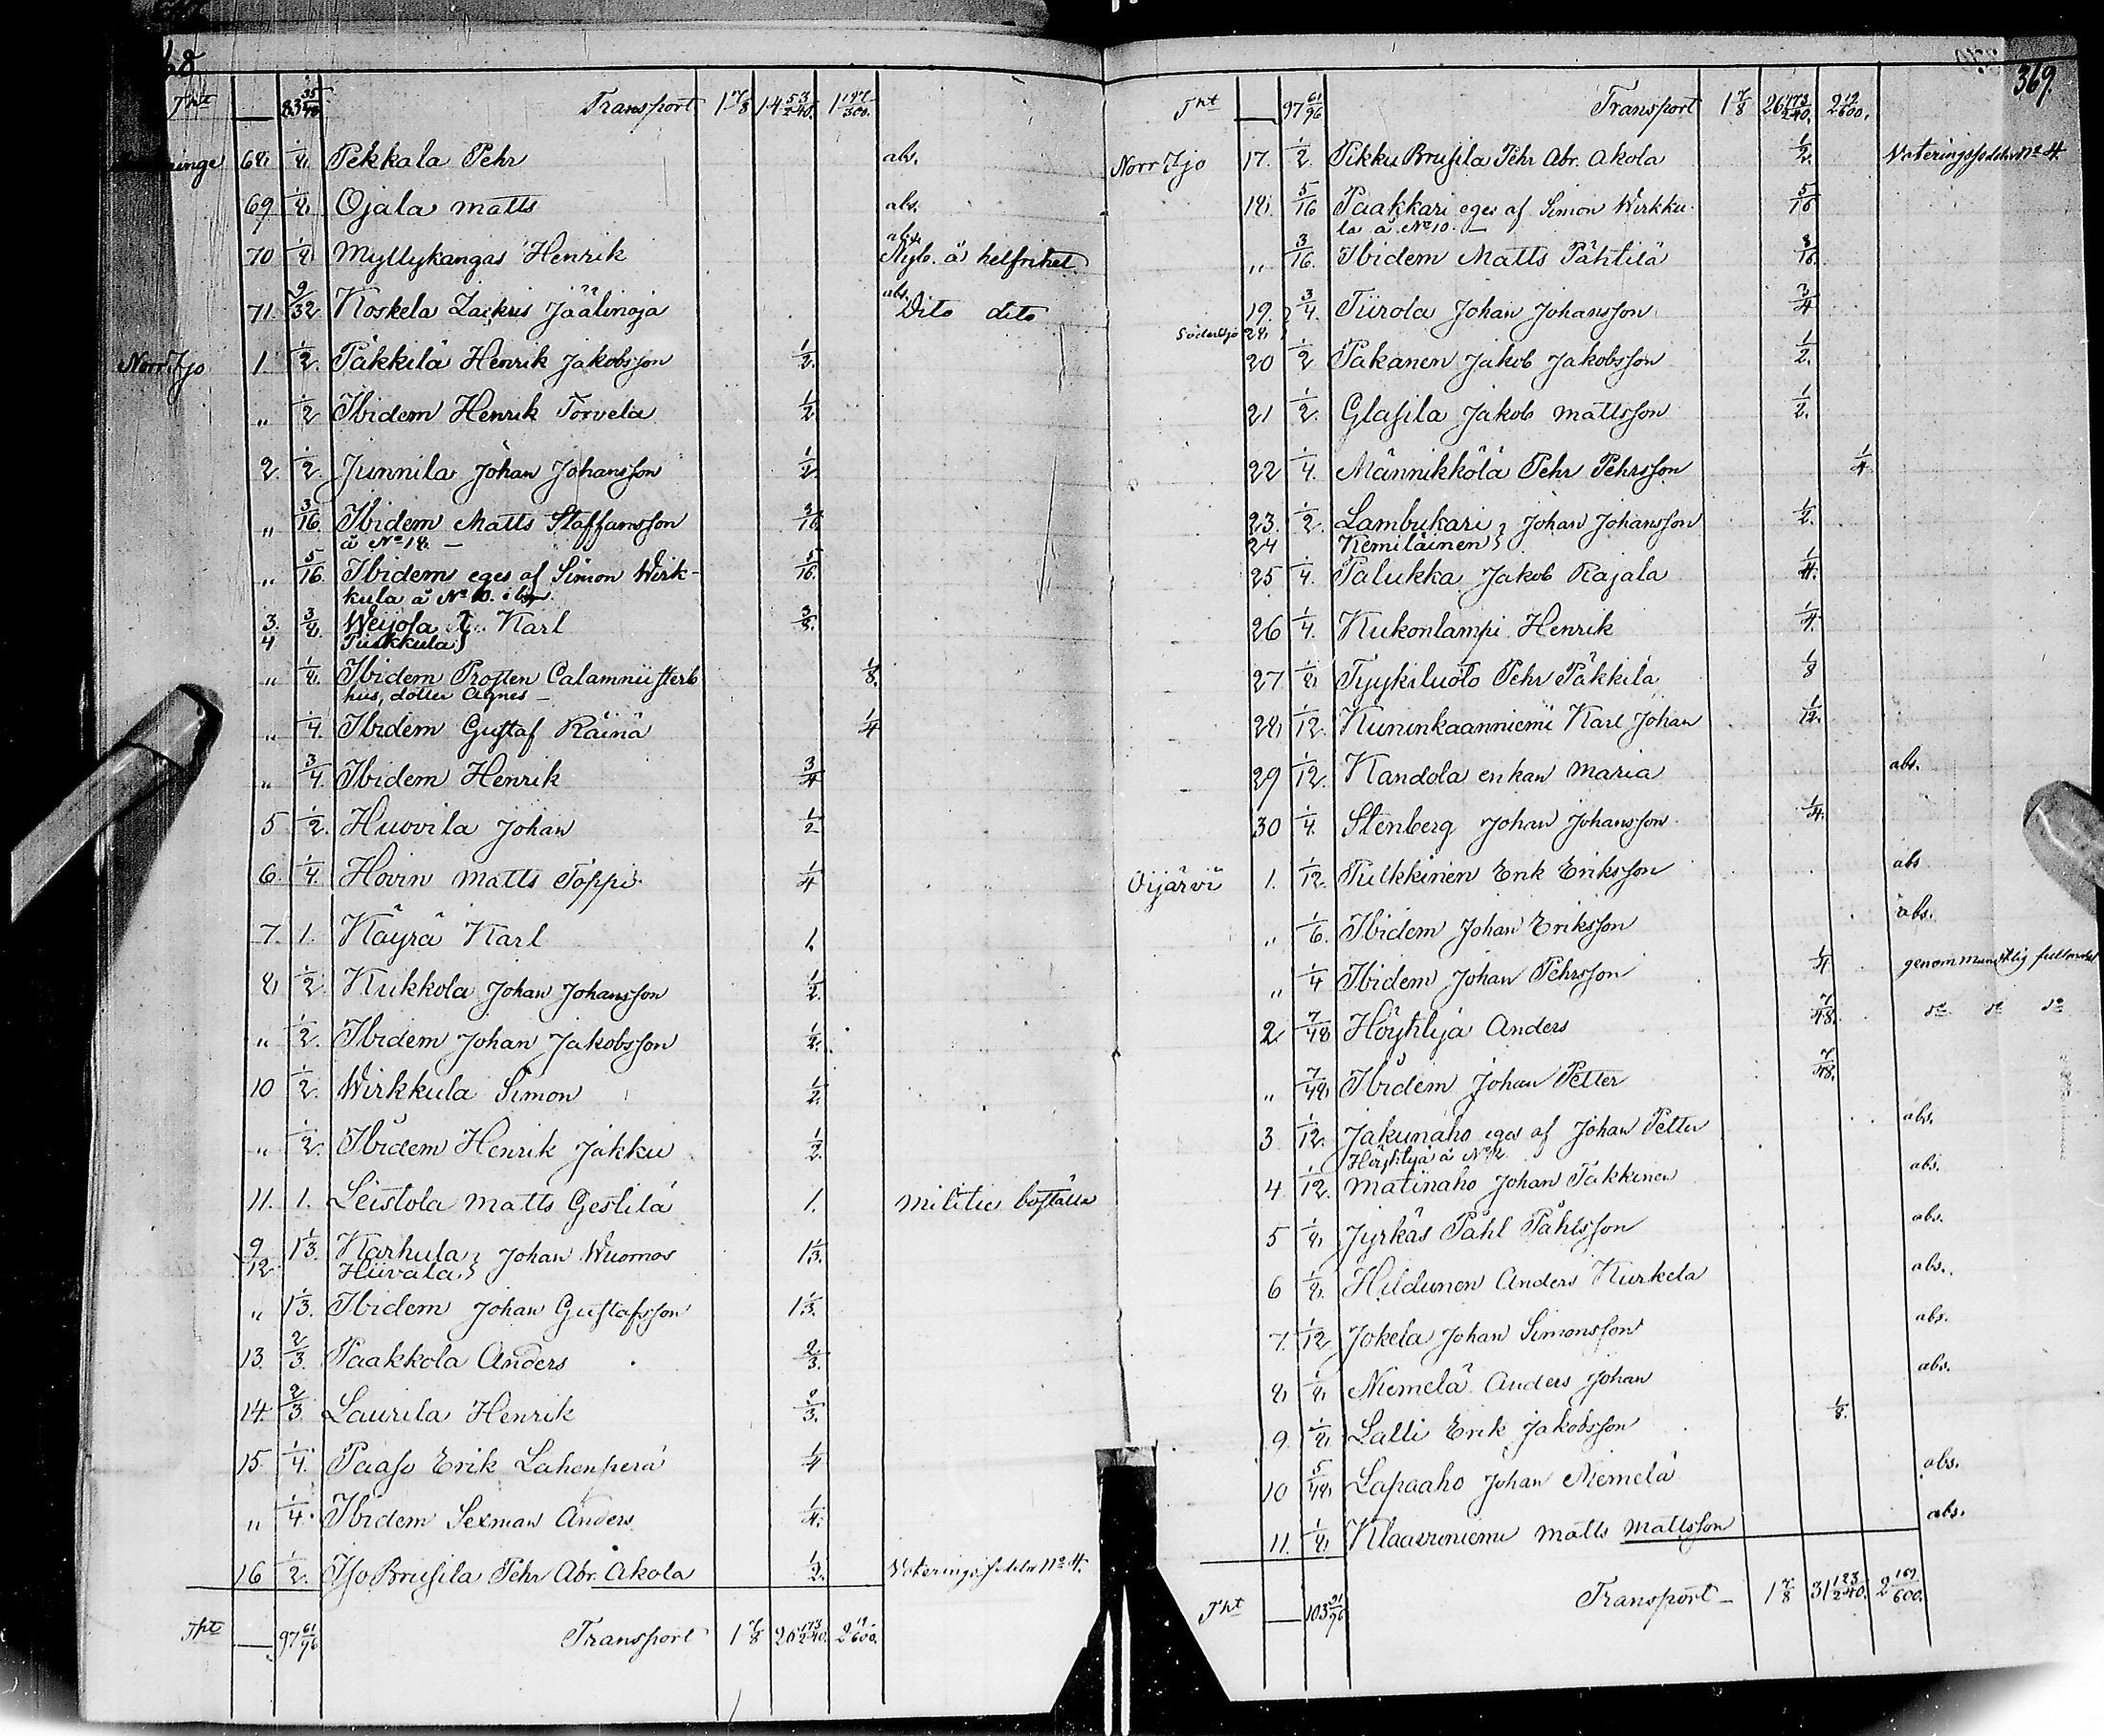 Tpt — 83 35/48 Transport 1 7/8 14 53/240. 1 197/300.
68 1/8 Pekkala Pehr abs.
69 1/8 Ojala Matts abs.
70 1/8 Myllykangas Henrik abs. Nyb. å helfrihet
71 9/32 Koskela Zackris Jäälinoja abs. Dito dito
Norr Ijo 1 1/2. Päkkilä Henrik Jakobsson 1/2.
„ 1/2 Ibidem Henrik Torvela 1/2
2 1/2. Junnila Johan Johansson 1/2.
„ 3/16. Ibidem Matts Staffansson 3/16
å No 18. —
„ 5/16. Ibidem eges af Simon Wirk- 5/16.
kula å No 10.
3. 3/8. Weijola } Karl 3/8.
4 Puikkula }
„ 1/8. Ibidem Prosten Calamnii sterb 1/8.
hus, dotter Agnes —
„ 1/4. Ibidem Gustaf Räinä 1/4
„ 3/4. Ibidem Henrik 3/4
5 1/2. Huovila Johan 1/2
6. 1/4. Hovin Matts Toppi 1/4
7. 1. Käyrä Karl 1.
8 1/2 Kukkola Johan Johansson 1/2
„ 1/2. Ibidem Johan Jakobsson 1/2.
10 1/2. Wirkkula Simon 1/2.
„ 1/2. Ibidem Henrik Jakku 1/2.
11. 1. Leistola Matts Gestilä 1. Militie boställe
9 1 1/3. Karhula } Johan Wuomos 1 1/3.
12 Hiivala }
„ 1 1/3. Ibidem Johan Gustafsson 1 1/3.
13. 2/3. Paakkola Anders 2/3.
14. 2/3 Laurila Henrik 2/3.
15 1/4. Paaso Erik Lahenperä 1/4
„ 1/4. Ibidem Sexman Anders 1/4.
16 1/2. Iso Brusila Pehr Abr. Akola 1/2. No 4.
Tpt — 97 61/96 Transport 1 7/8 26 173/240. 2 19/600.
369.
Tpt — 97 61/96 Transport 1 7/8 26 173/240. 2 19/600.
Norr Ijo 17. 1/2. Pikku Brusila Pehr Abr. Akola 1/2. No 4.
18. 5/16 Paakkari eges af Simon Wirkku- 5/16
la å No 10. —
„ 3/16. Ibidem Matts Pähtilä 3/16.
19. } 3/4. Tiirola Johan Johansson 3/4
Söder Ijo 28 }
20 1/2 Pakanen Jakob Jakobsson 1/2.
21 1/2. Glasila Jakob Mattsson 1/2.
22 1/4. Männikkölä Pehr Pehrsson 1/4
23. 1/2. Lambukari } Johan Johansson 1/2.
24 Kemiläinen }
25 1/4. Palukka Jakob Rajala 1/4.
26 1/4. Kukonlampi Henrik 1/4.
27 1/8 Tyykiluoto Pehr Päkkilä 1/8
28 1/12. Kuninkaanniemi Karl Johan 1/12.
29 1/12. Kandola enkan Maria abs.
30 1/4. Stenberg Johan Johansson 1/4.
Oijärvi 1. 1/12. Pulkkinen Erik Eriksson abs
„ 1/6. Ibidem Johan Eriksson abs.
„ 1/4 Ibidem Johan Pehrsson 1/4 genom muntlig fullmakt
2 7/48 Höyhtyä Anders 7/48. do do do
„ 7/48 Ibidem Johan Petter 7/48.
3 1/12. Jakunaho eges af Johan Petter abs.
Höyhtyä å No 2
4 1/12. Matinaho Johan Takkinen abs.
5 1/8. Jyrkäs Påhl Påhlsson abs.
6 1/8. Hildunen Anders Kurkela abs.
7. 1/12 Jokela Johan Simonsson abs.
8 1/8. Niemelä Anders Johan abs.
9. 1/8. Lalli Erik Jakobsson 1/8.
10 5/48 Lapaaho Johan Niemelä abs.
11. 1/8. Klaavoniemi Matts Mattsson abs.
Tpt — 103 91/96 Transport — 1 7/8 31 123/240. 2 169/600.